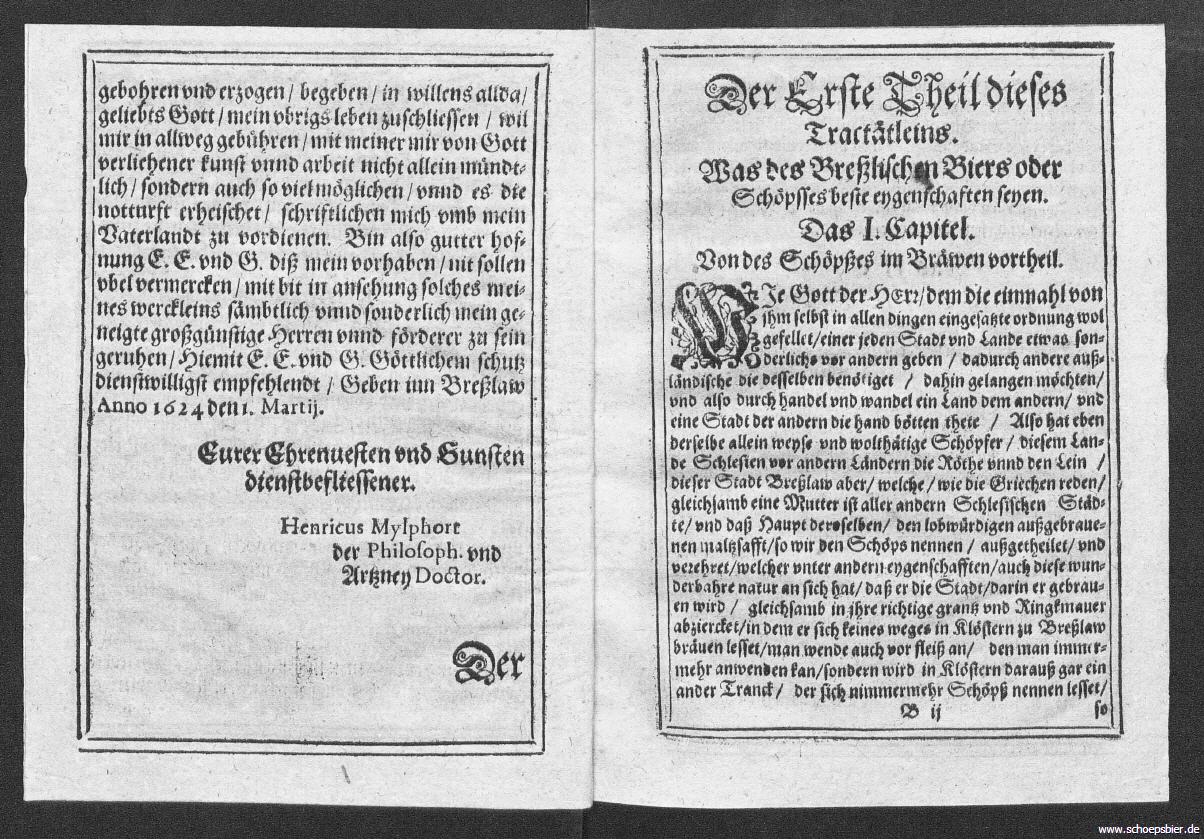 gebohren vnd erzogen / begeben / in willens allda /
geliebts Gott / mein vbrigs leben zuschliessen / wil
mir in allweg gebühren / mit meiner mir von Gott
verliehener kunst vnnd arbeit nicht allein mündt-
lich / sondern auch so viel möglichen / vnnd es die
notturft erheischet / schriftlichen mich vmb mein
Vaterlandt zu vordienen. Bin also gutter hof-
nung E. E. vnd G. diß mein vorhaben / nit sollen
vbel vermercken / mit bit in ansehung solches mei-
nes werckleins sämbtlich vnnd sonderlich mein ge-
neigte großgünstige Herren vnnd förderer zu sein
geruhen / Hiemit E. E. vnd G. Göttlichem schutz
dienstwilligst empfehlendt / Geben inn Breßlaw
Anno 1624 den 1. Martij.
Eurer Ehrenuesten vnd Gunsten
dienstbefliessener.
Henricus Mylphort
der Philosoph. vnd
Artzney Doctor.
Der
Der Erste Theil dieses
Tractätleins.
Was des Breßlischen Biers oder
Schöpsses beste eygenschaften seyen.
Das I. Capitel.
Von des Schöpßes im Bräwen vortheil.
WJe Gott der HErr / dem die einmahl von
jhm selbst in allen dingen eingesatzte ordnung wol
gefellet / einer jeden Stadt vnd Lande etwas son-
derlichs vor andern geben / dadurch andere auß-
ländische die desselben benötiget / dahin gelangen möchten /
vnd also durch handel vnd wandel ein Land dem andern / vnd
eine Stadt der andern die hand bötten thete / Also hat eben
derselbe allein weyse vnd wolthätige Schöpfer / diesem Lan-
de Schlesien vor andern Ländern die Röthe vnnd den Lein /
dieser Stadt Breßlaw aber / welche / wie die Griechen reden /
gleichsamb eine Mutter ist aller andern Schlesischen Städ-
te / vnd daß Haupt deroselben / den lobwürdigen außgebraue-
nen maltzsafft / so wir den Schöps nennen / außgetheilet / vnd
verehret / welcher vnter andern eygenschafften / auch diese wun-
derbahre natur an sich hat / daß er die Stadt / darin er gebrau-
en wird / gleichsamb in jhre richtige grantz vnd Ringkmauer
abziercket / in dem er sich keines weges in Klöstern zu Breßlaw
bräuen lesset / man wende auch vor fleiß an / den man immer-
mehr anwenden kan / sondern wird in Klöstern darauß gar ein
ander Tranck / der sich nimmermehr Schöpß nennen lesset /
B ij so
www.schoepsbier.de